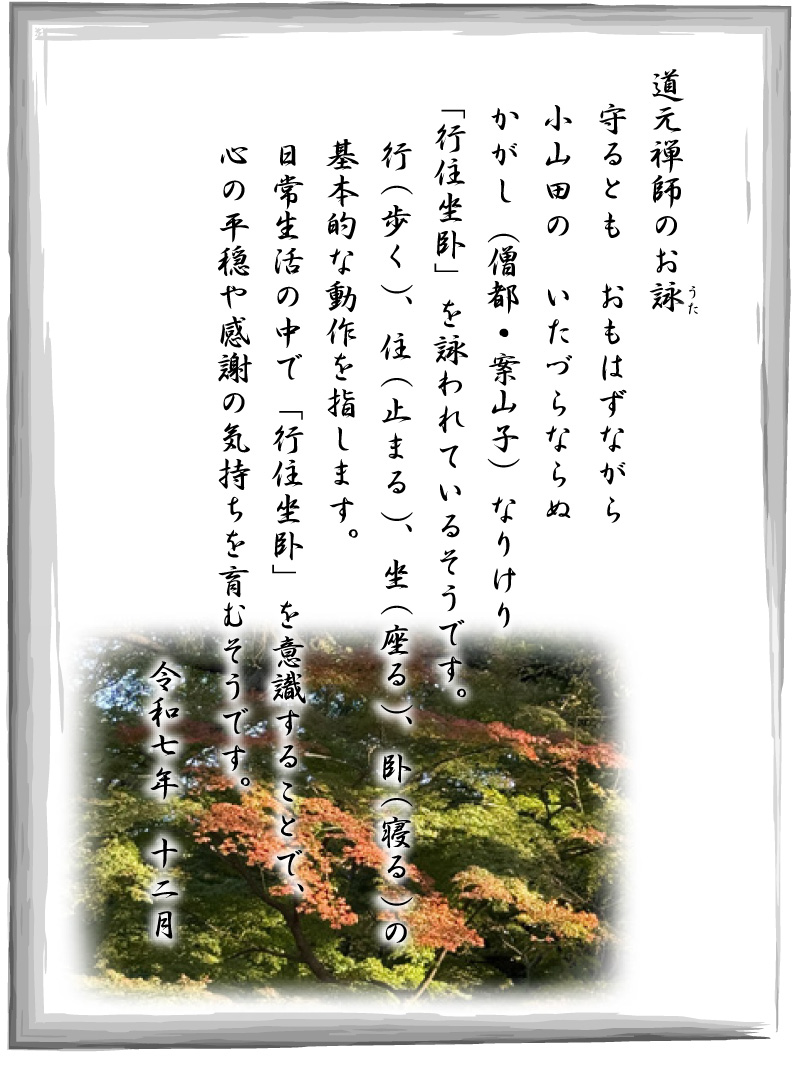 道元禅師のお詠
うた
守るとも　おもはずながら
小山田の　いたづらならぬ
かがし（僧都・案山子）なりけり
「行住坐臥」を詠われているそうです。
行（歩く）、住（止まる）、坐（座る）、臥（寝る）の
基本的な動作を指します。
日常生活の中で「行住坐臥」を意識することで、
心の平穏や感謝の気持ちを育むそうです。
令和七年　十二月